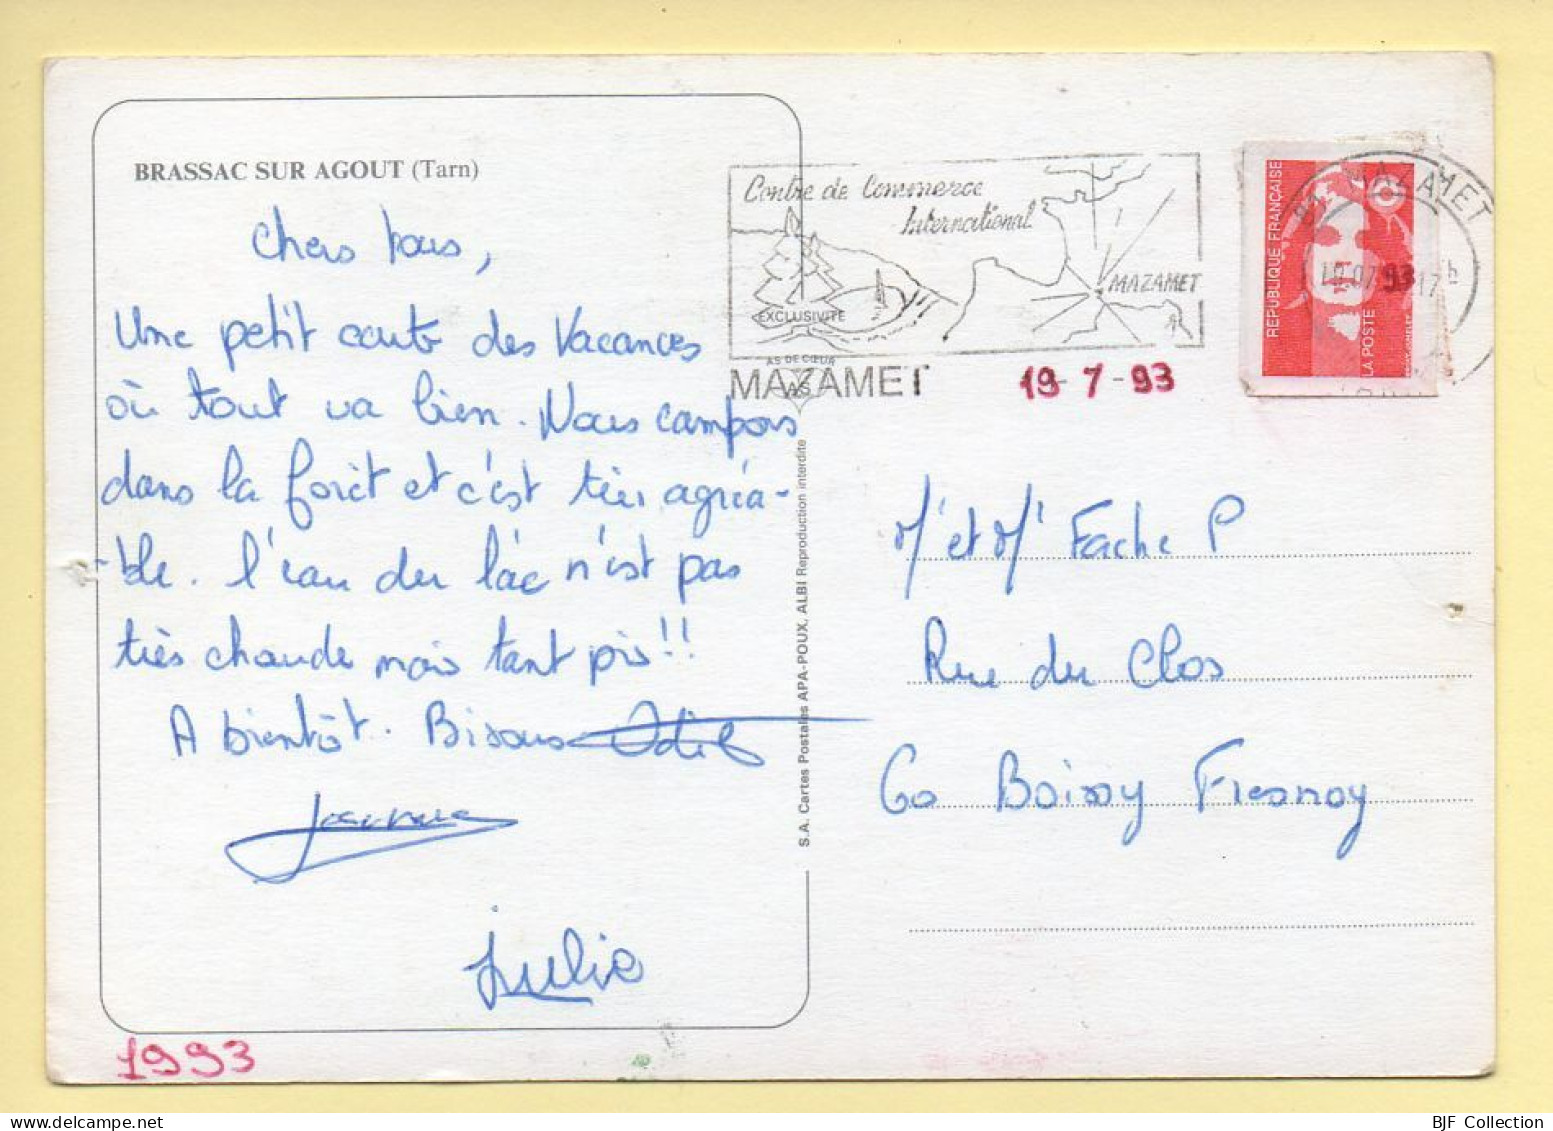 BRASSAC SUR AGOUT (Tarn)
Chers tous,
Une petit carte des Vacances
où tout va bien. Nous campons
dans la forêt et c'est très agréa-
-ble. l'eau du lac n'est pas
très chaude mais tant pis!!
A bientôt. Bisous Odile
Julie
1993
S.A. Cartes Postales APA-POUX, ALBI Reproduction interdite
Centre de Commerce
International
MAZAMET
EXCLUSIVITÉ
AS DE CŒUR
AS
MAZAMET
19-7-93
MAZAMET
19.07.93 17h
REPUBLIQUE FRANÇAISE
LA POSTE
M' et M' Fache P
Rue du Clos
60 Boissy Fresnoy
BJF Collection